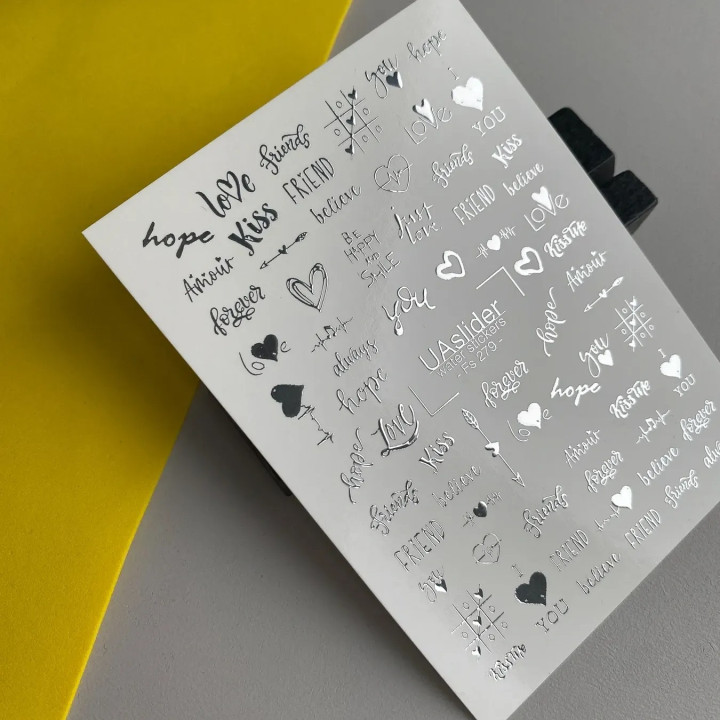 hope
love
friends
you
hope
Kiss
FRIEND
LOVE
I
YOU
Amour
believe
friends
Kiss
forever
BE
HAPPY
AND
SMILE
Just
Love
FRIEND
believe
love
always
you
LOVE
Kiss me
hope
UAslider
water stickers
- Fs 279 -
hope
Amour
hope
LOVE
forever
you
Kiss
love
hope
Kiss me
I
YOU
friends
believe
Amour
forever
believe
forever
FRIEND
friends
friends
alwa
you
I
YOU
FRIEND
believe
FRIEND
Kiss me